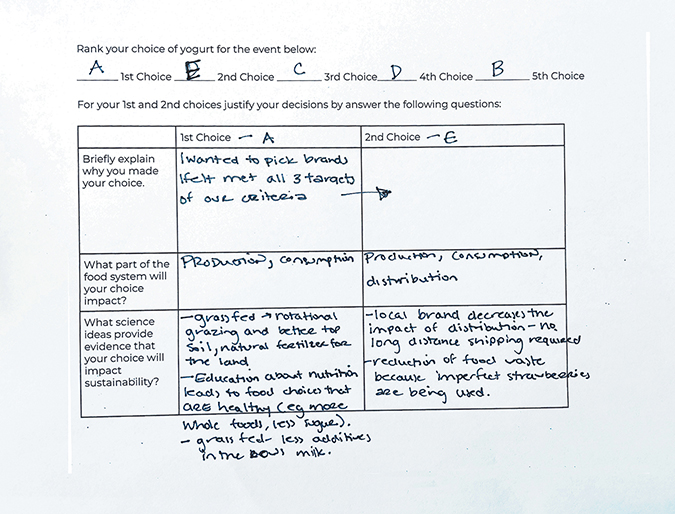 Rank your choice of yogurt for the event below:
A 1st Choice E 2nd Choice C 3rd Choice D 4th Choice B 5th Choice
For your 1st and 2nd choices justify your decisions by answer the following questions:
1st Choice - A
2nd Choice - E
Briefly explain
why you made
your choice.
I wanted to pick brands
I felt met all 3 targets
of our criteria →
What part of the
food system will
your choice
impact?
Production, consumption
Production, consumption,
distribution
What science
ideas provide
evidence that
your choice will
impact
sustainability?
- grassfed → rotational
grazing and better top
soil, natural fertilizer for
the land
- Education about nutrition
leads to food choices that
are healthy (eg more
whole foods, less sugar).
- grass fed - less additives
in the cows milk.
- local brand decreases the
impact of distribution - no
long distance shipping required
- reduction of food waste
because imperfect strawberries
are being used.